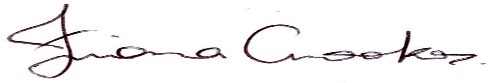 Fiona Crookes.